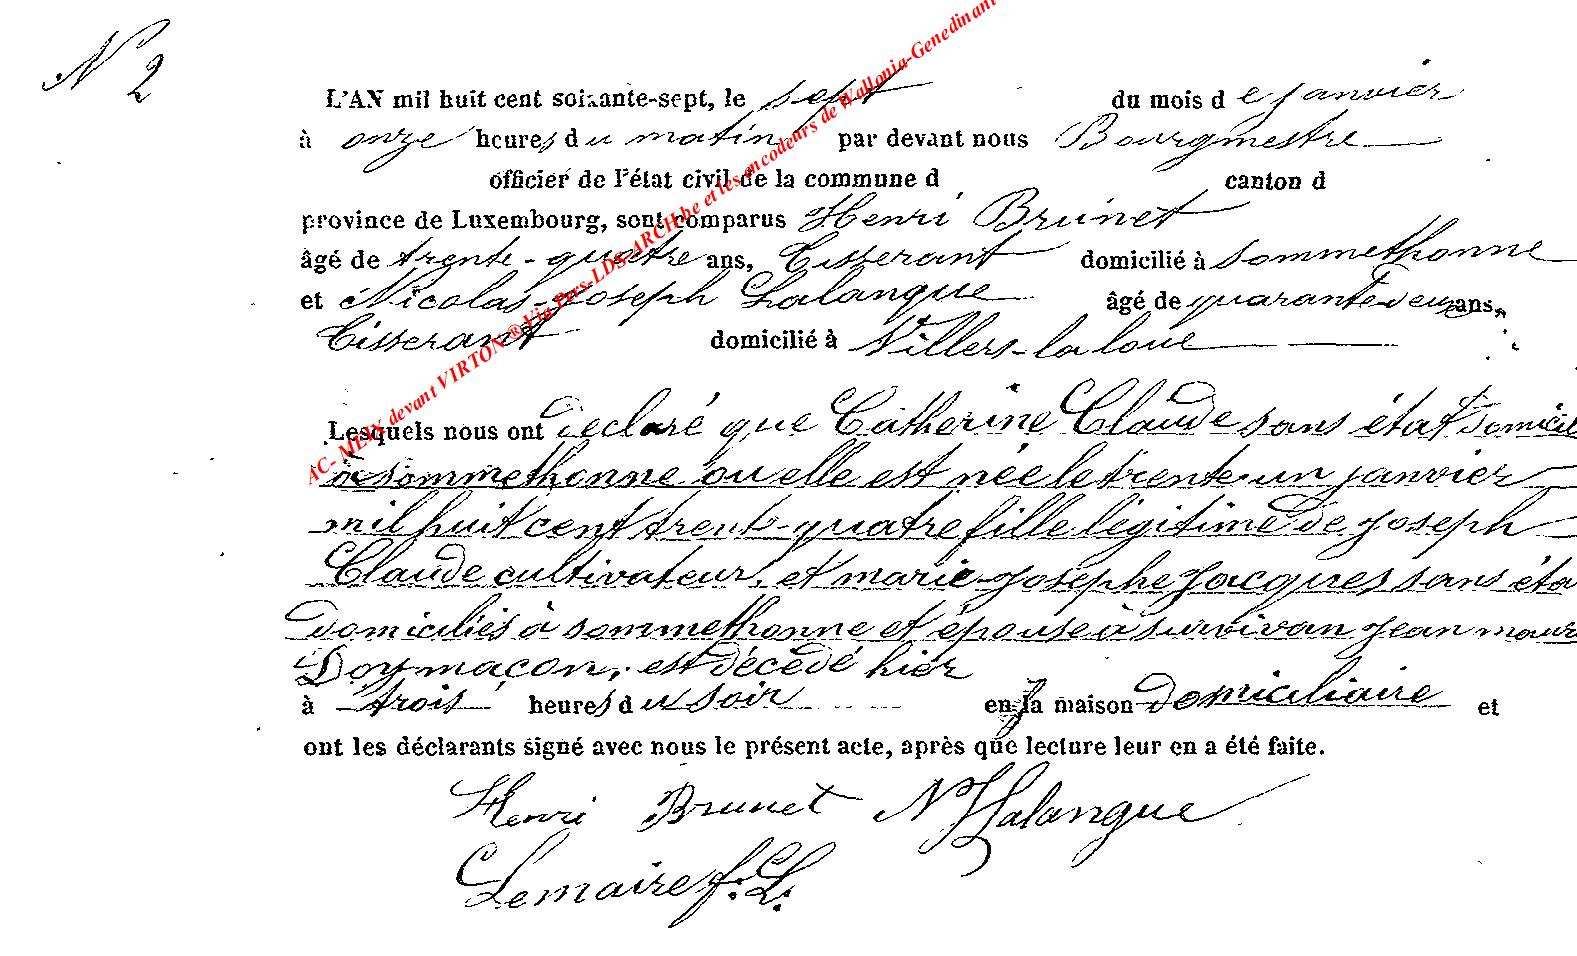 N 2
L'AN mil huit cent soixante-sept, le sept du mois de janvier
à onze heures du matin par devant nous Bourgmestre
officier de l'état civil de la commune d canton d
province de Luxembourg, sont comparus Henri Brunet
âgé de trente-quatre ans, Tisserant domicilié à sommethonne
et Nicolas-Joseph Lalangue âgé de quarante deux ans,
Tisserant domicilié à Villers-la loue
Lesquels nous ont declaré que Catherine Claude sans état domicil
à sommethonne ou elle est née le trente un janvier
mil huit cent trente-quatre fille légitime de joseph
Claude cultivateur, et marie-josephe Jacques sans éta
domiciliés à sommethonne et épouse à survivan jean maur
Doy maçon, est décédé hier
à trois heures du soir en sa maison domiciliaire et
ont les déclarants signé avec nous le présent acte, après que lecture leur en a été faite.
Henri Brunet N J Lalangue
Lemaire f. L.
AC- MEIX devant VIRTON ® Via Pers-LDS-ARCH.be et les encodeurs de Wallonia-Genedinant